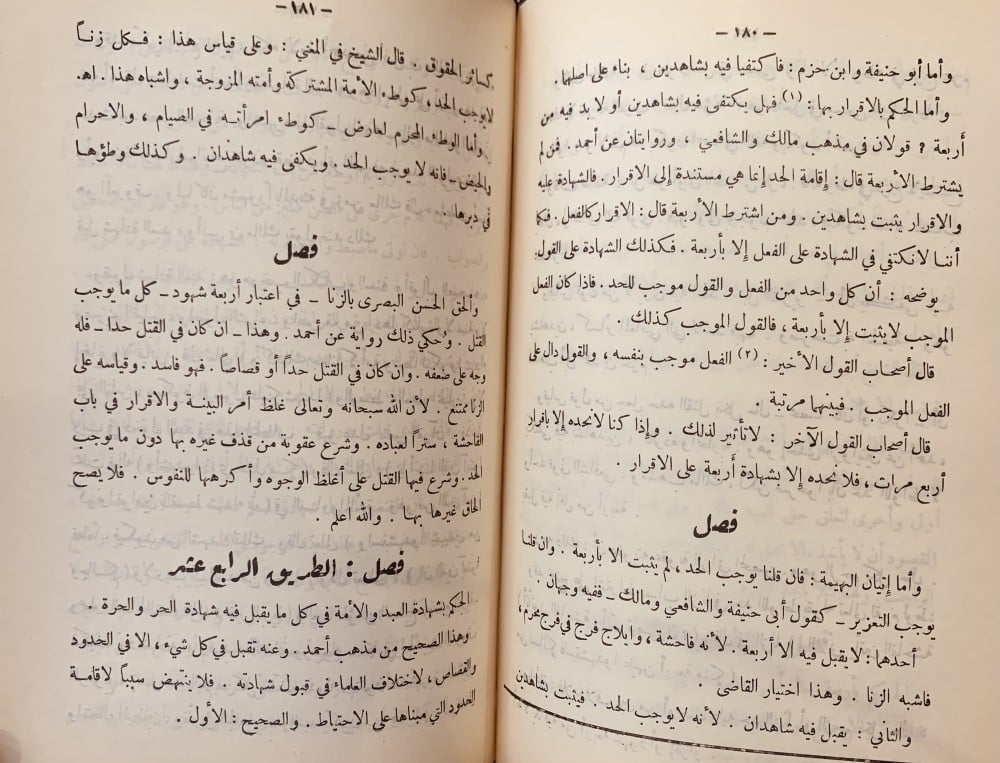 – ١٨٠ –
وأما أبو حنيفة وابن حزم : فاكتفيا فيه بشاهدين ، بناء على اصلهما .
وأما الحكم بالاقرار بها : (١) فهل يكتفى فيه بشاهدين أو لا بد فيه من
أربعة ? قولان في مذهب مالك والشافعي ، وروايتان عن أحمد . فمن لم
يشترط الأربعة قال : إقامة الحد إنما هي مستندة إلى الاقرار . فالشهادة عليه
والاقرار يثبت بشاهدين . ومن اشترط الأربعة قال : الاقرار كالفعل . فكما
أننا لا نكتفي في الشهادة على الفعل إلا بأربعة . فكذلك الشهادة على القول
يوضحه : أن كل واحد من الفعل والقول موجب للحد . فاذا كان الفعل
الموجب لا يثبت إلا بأربعة ، فالقول الموجب كذلك .
قال أصحاب القول الأخير : (٢) الفعل موجب بنفسه ، والقول دال على
الفعل الموجب . فبينهما مرتبة .
قال أصحاب القول الآخر : لا تأثير لذلك . وإذا كنا لا نحده إلا باقرار
أربع مرات ، فلا نحده إلا بشهادة أربعة على الاقرار .
فصل
وأما إتيان البهيمة : فان قلنا يوجب الحد ، لم يثبت الا بأربعة . وان قلنا
يوجب التعزير – كقول أبى حنيفة والشافعي ومالك – ففيه وجهان .
أحدهما : لا يقبل فيه الا أربعة . لأنه فاحشة ، وايلاج فرج في فرج محرم ،
فاشبه الزنا . وهذا اختيار القاضى .
والثاني : يقبل فيه شاهدان . لأنه لا يوجب الحد . فيثبت بشاهدين
– ١٨١ –
كسائر الحقوق . قال الشيخ في المغني : وعلى قياس هذا : فكل زناً
لا يوجب الحد ، كوطء الأمة المشتركة وأمته المزوجة ، واشباه هذا . اهـ
وأما الوطء المحرم لعارض – كوطء امرأته في الصيام ، والاحرام
والحيض – فانه لا يوجب الحد . ويكفى فيه شاهدان . وكذلك وطؤها
في دبرها .
فصل
وألحق الحسن البصرى بالزنا – في اعتبار أربعة شهود – كل ما يوجب
القتل . وحُكي ذلك رواية عن أحمد . وهذا – ان كان في القتل حدا – فله
وجه على ضعفه . وان كان في القتل حداً أو قصاصاً . فهو فاسد . وقياسه على
الزنا ممتنع . لأن الله سبحانه وتعالى غلظ أمر البينة والاقرار في باب
الفاحشة ، ستراً لعباده . وشرع عقوبة من قذف غيره بها دون ما يوجب
الحد . وشرع فيها القتل على أغلظ الوجوه وأكرهها للنفوس . فلا يصح
الحاق غيرها بها . والله اعلم .
فصل : الطريق الرابع عشر
الحكم بشهادة العبد والأمة في كل ما يقبل فيه شهادة الحر والحرة .
وهذا الصحيح من مذهب أحمد . وعنه تقبل في كل شيء ، الا في الحدود
والقصاص ، لاختلاف العلماء في قبول شهادته . فلا ينتهض سبباً لاقامة
الحدود التي مبناها على الاحتياط . والصحيح : الأول .